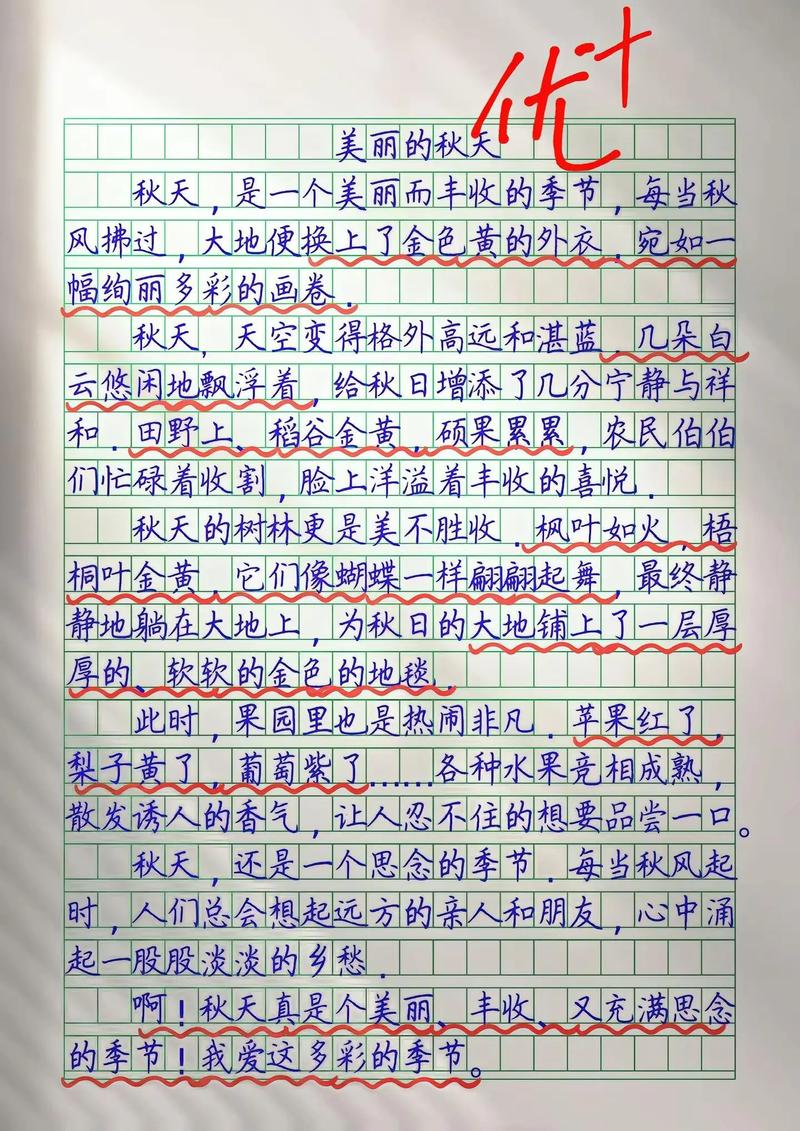 优+
美丽的秋天
秋天,是一个美丽而丰收的季节,每当秋
风拂过,大地便换上了金色黄的外衣.宛如一
幅绚丽多彩的画卷.
秋天,天空变得格外高远和湛蓝.几朵白
云悠闲地飘浮着,给秋日增添了几分宁静与祥
和.田野上、稻谷金黄,硕果累累,农民伯伯
们忙碌着收割,脸上洋溢着丰收的喜悦.
秋天的树林更是美不胜收.枫叶如火,梧
桐叶金黄,它们像蝴蝶一样翩翩起舞,最终静
静地躺在大地上,为秋日的大地铺上了一层厚
厚的、软软的金色的地毯.
此时,果园里也是热闹非凡.苹果红了,
梨子黄了,葡萄紫了……各种水果竞相成熟,
散发诱人的香气,让人忍不住的想要品尝一口。
秋天,还是一个思念的季节.每当秋风起
时,人们总会想起远方的亲人和朋友,心中涌
起一股股淡淡的乡愁.
啊!秋天真是个美丽、丰收、又充满思念
的季节!我爱这多彩的季节。